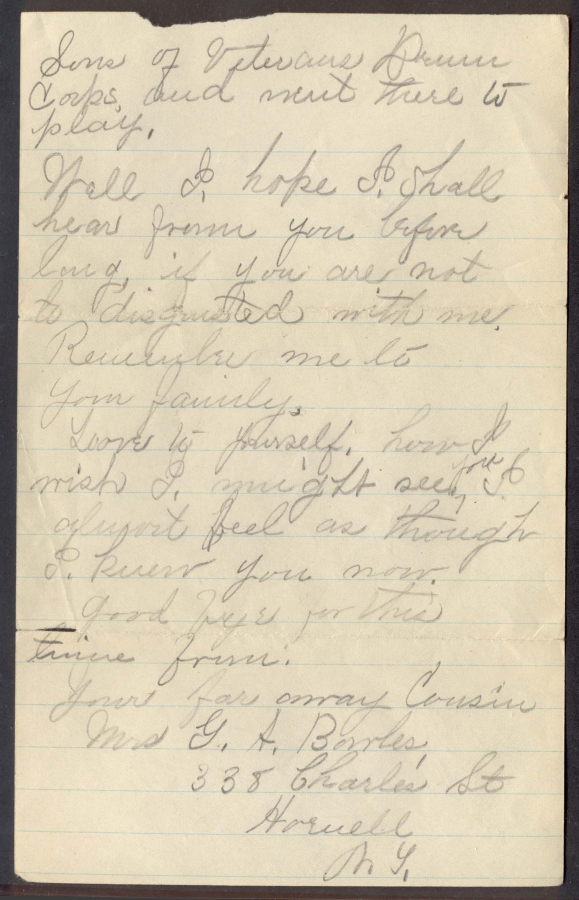 Sons of Veterans Drum
Corps, and went there to
play.
Well I. hope I. Shall
hear from you before
long, if you are not
to disgusted with me.
Remember me to
your family.
Love to yourself. how I
wish I. might see, you I
almost feel as though
I. knew you now.
good bye for this
time from.
Your far away Cousin
Mrs G. A. Bowles,
338 Charles St
Hornell
N. Y.